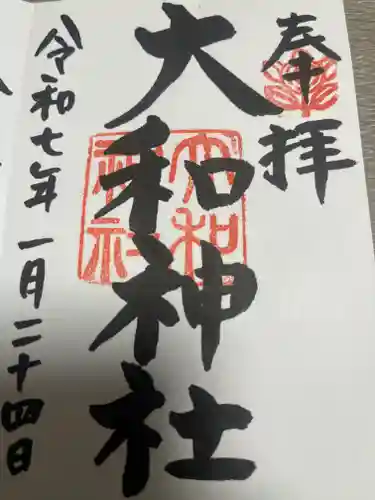 奉拝
大和神社
大和神社
令和七年一月二十四日